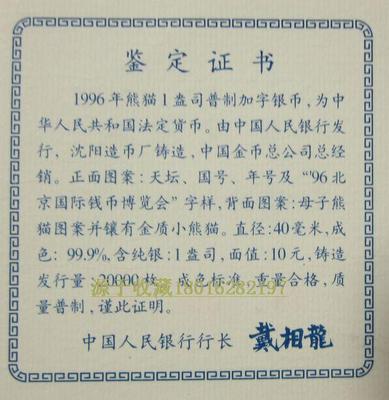 鉴定证书
1996年熊猫1盎司普制加字银币，为中
华人民共和国法定货币。由中国人民银行发
行，沈阳造币厂铸造，中国金币总公司总经
销。正面图案：天坛、国号、年号及“96北
京国际钱币博览会”字样，背面图案：母子熊
猫图案并镶有金质小熊猫。直径：40毫米，成
色：99.9%，含纯银：1盎司，面值：10元，铸造
发行量：20000枚，成色标准，重量合格，质
收藏18016282197
量普制，谨此证明。
中国人民银行行长 戴相龍